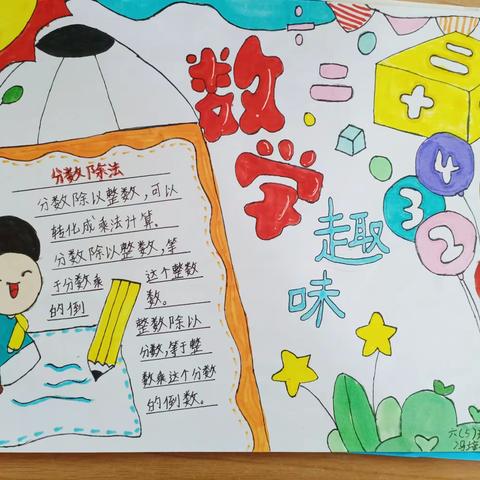 数学
趣味
分数除法
分数除以整数,可以
转化成乘法计算。
分数除以整数,等
于分数乘 这个整数
的倒 数。
整数除以
分数,等于整
数乘这个分数
的倒数。
+
4
3
2
六(5)